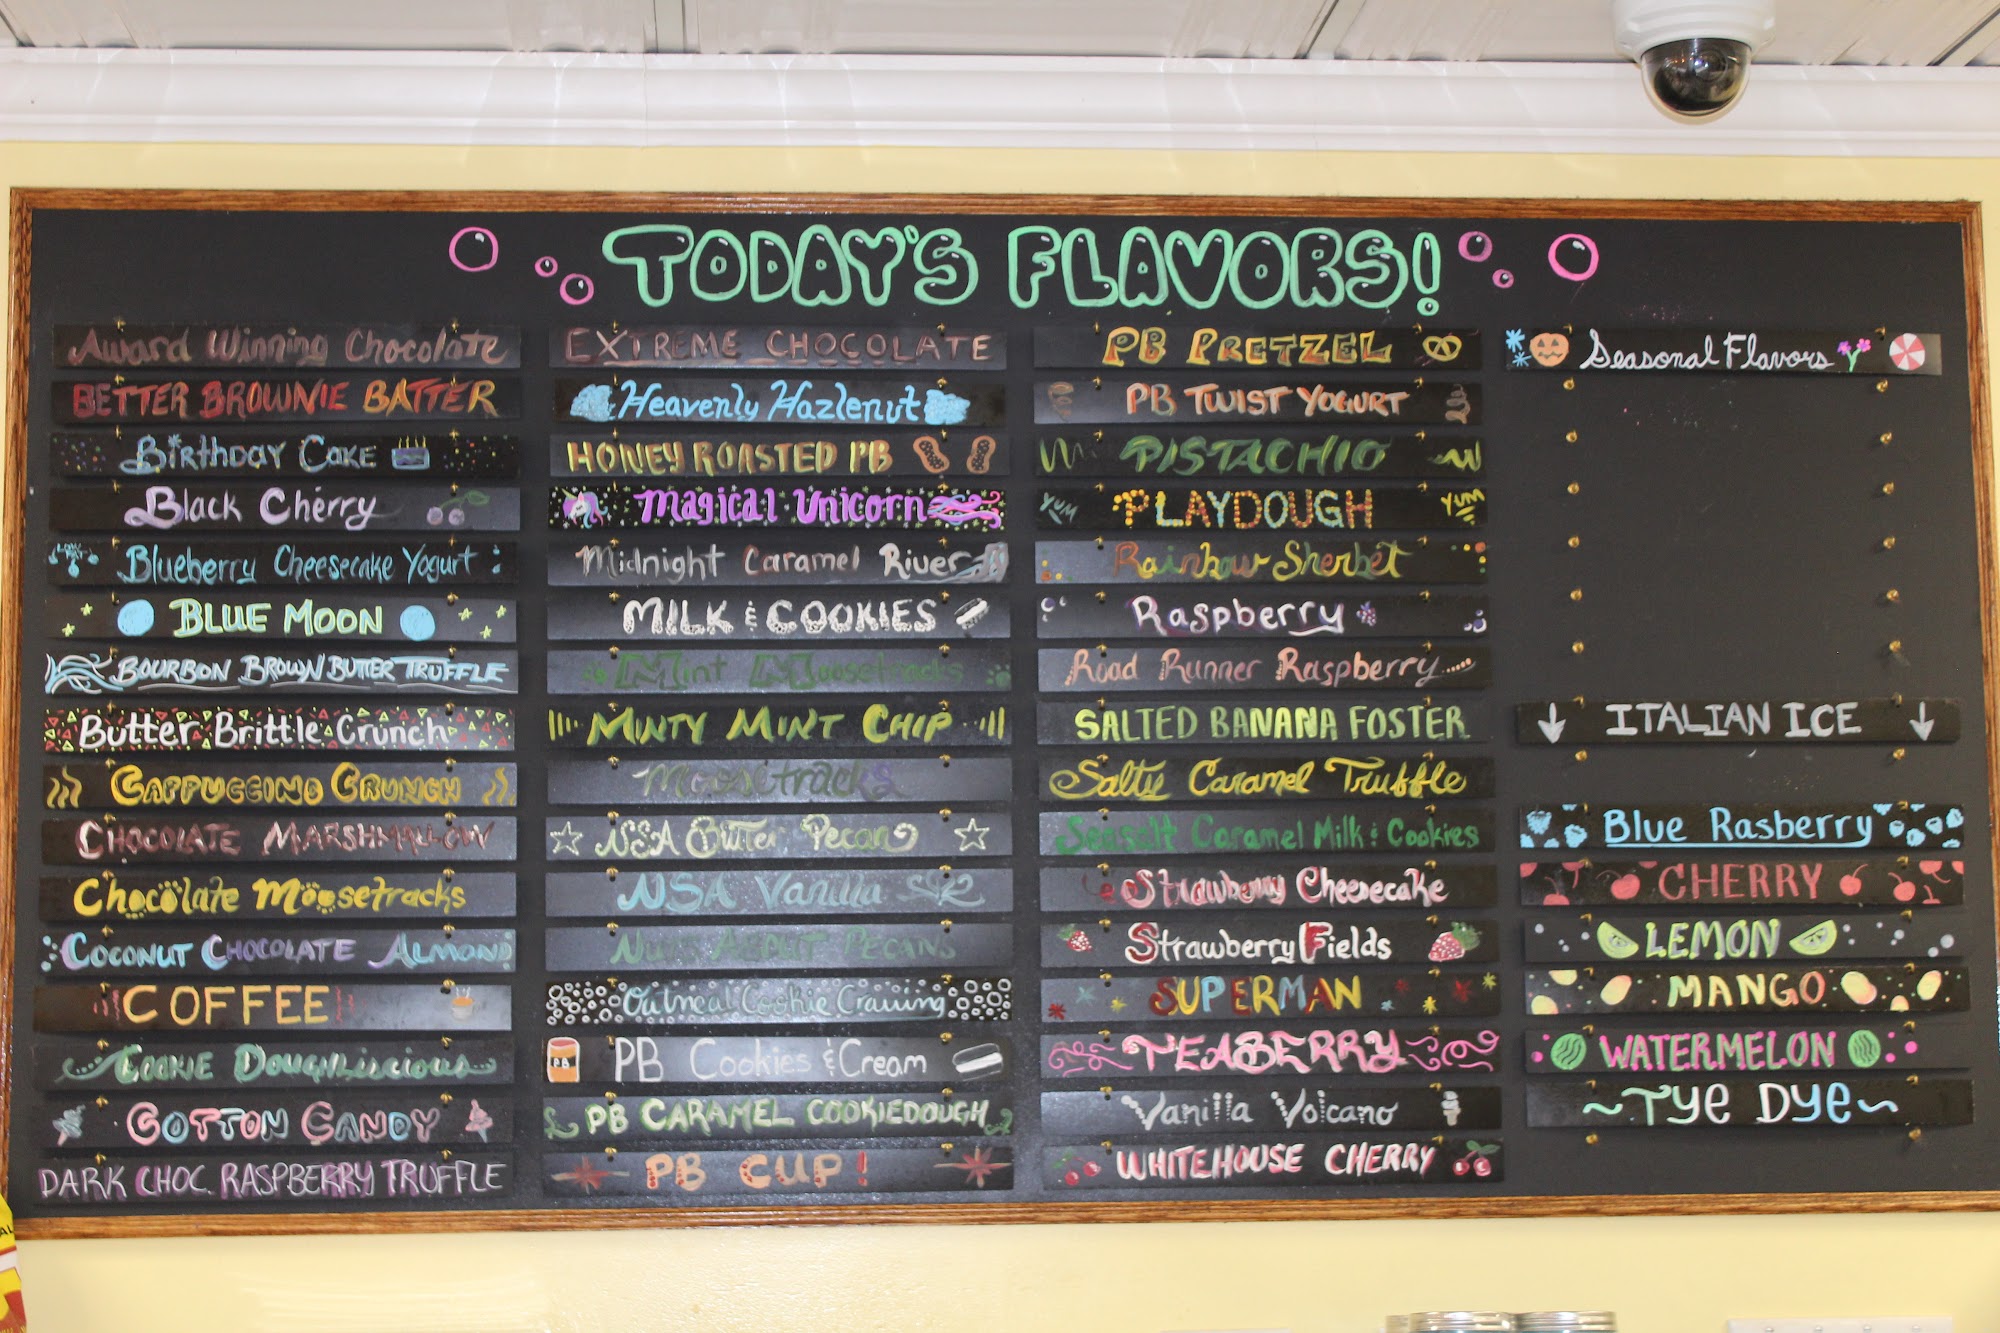 TODAY'S FLAVORS!
Award Winning Chocolate
BETTER BROWNIE BATTER
Birthday Cake
Black Cherry
Blueberry Cheesecake Yogurt
BLUE MOON
BOURBON BROWN BUTTER TRUFFLE
Butter Brittle Crunch
CAPPUCCINO CRUNCH
CHOCOLATE MARSHMALLOW
Chocolate Moosetracks
COCONUT CHOCOLATE ALMOND
COFFEE
COOKIE DOUGHLISCIOUS
COTTON CANDY
DARK CHOC. RASPBERRY TRUFFLE
EXTREME CHOCOLATE
Heavenly Hazlenut
HONEY ROASTED PB
Magical Unicorn
Midnight Caramel River
MILK & COOKIES
Mint Moosetracks
MINTY MINT CHIP
Moosetracks
NSA Butter Pecan
NSA Vanilla
NUTS ABOUT PECANS
Oatmeal Cookie Craving
PB
PB Cookies & Cream
PB CARAMEL COOKIEDOUGH
PB CUP!
PB PRETZEL
PB TWIST YOGURT
PISTACHIO
YUM PLAYDOUGH YUM
Rainbow Sherbet
Raspberry
Road Runner Raspberry
SALTED BANANA FOSTER
Salty Caramel Truffle
Seasalt Caramel Milk & Cookies
Strawberry Cheesecake
Strawberry Fields
SUPERMAN
TEABERRY
Vanilla Volcano
WHITEHOUSE CHERRY
Seasonal Flavors
ITALIAN ICE
Blue Rasberry
CHERRY
LEMON
MANGO
WATERMELON
Tye Dye